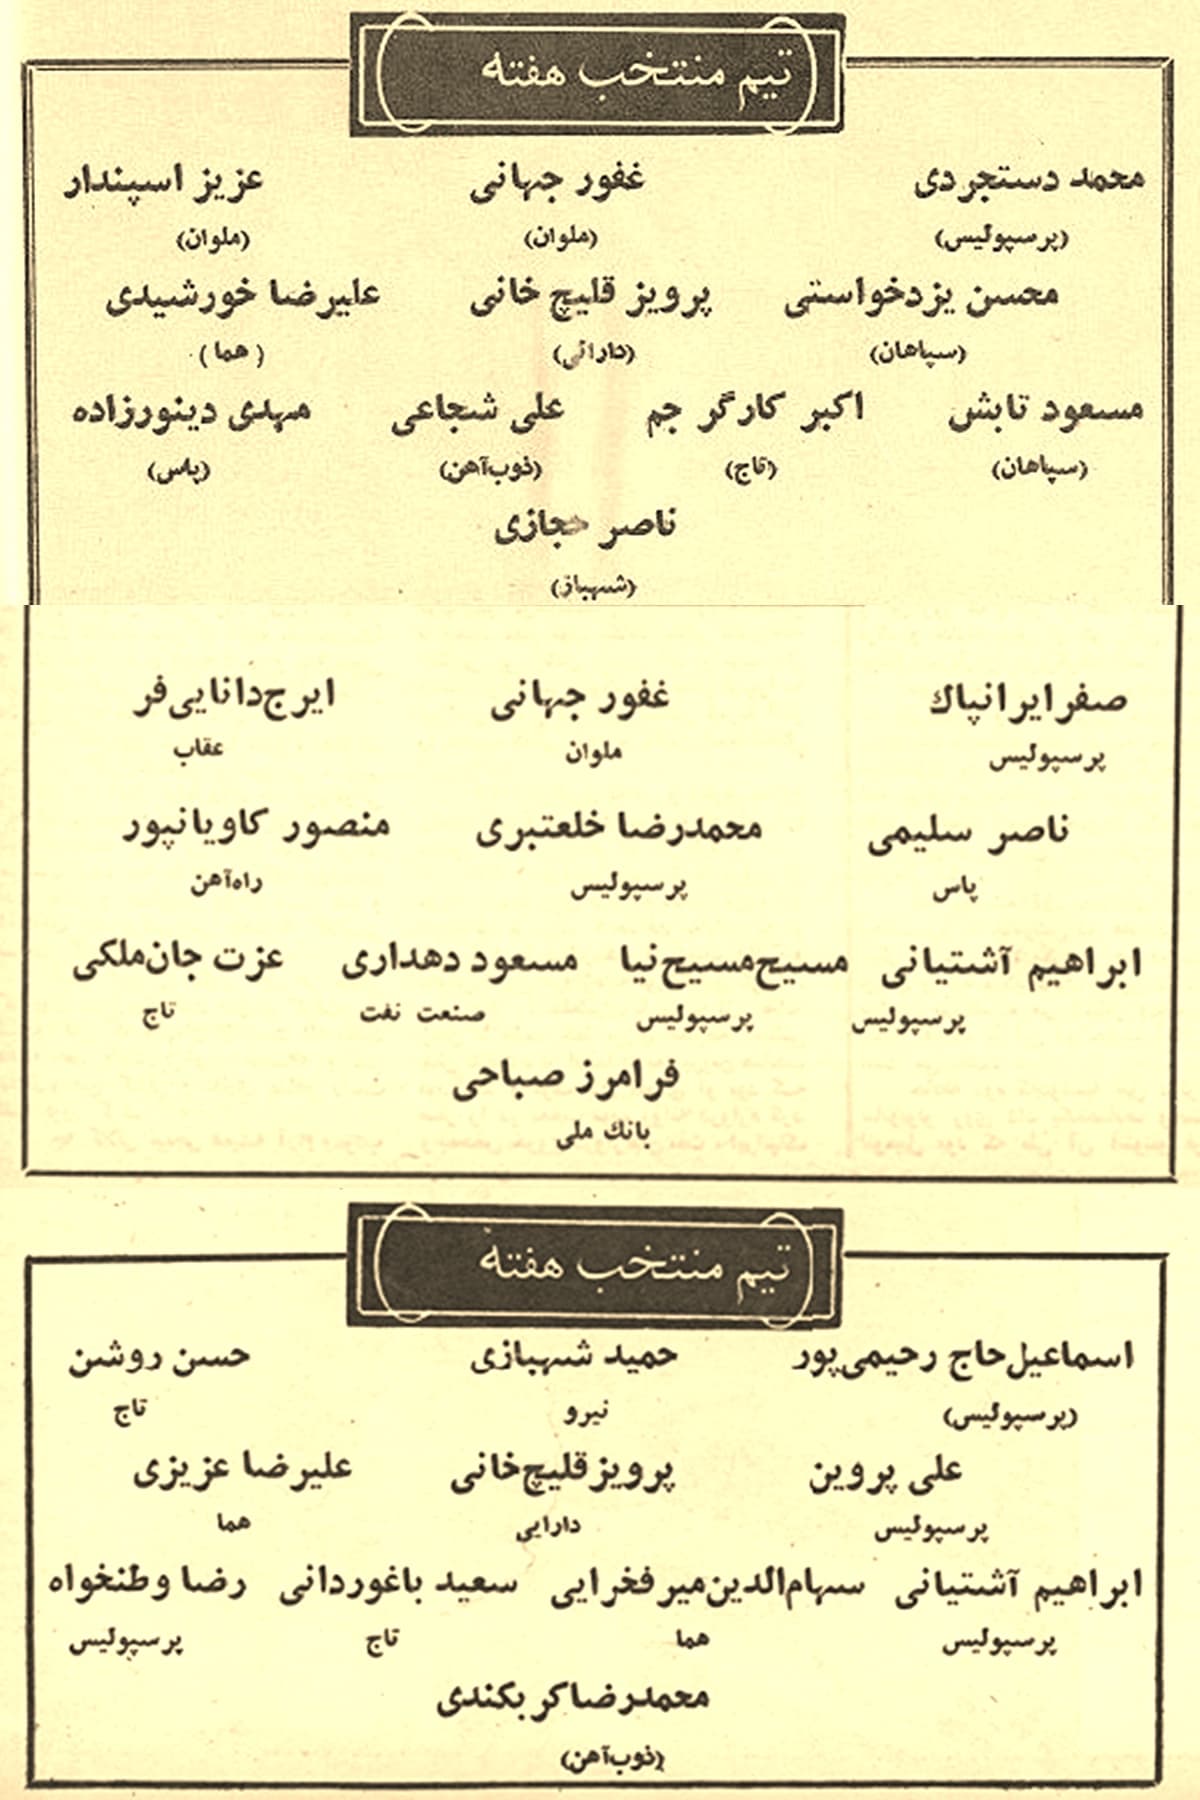 تیم منتخب هفته
محمد دستجردی غفور جهانی عزیز اسپندار
(پرسپولیس) (ملوان) (ملوان)
محسن یزدخواستی پرویز قلیچ خانی علیرضا خورشیدی
(سپاهان) (دارائی) (هما)
مسعود تابش اکبر کارگر جم علی شجاعی مهدی دینورزاده
(سپاهان) (تاج) (ذوب‌آهن) (پاس)
ناصر حجازی
(شهباز)
صفر ایرانپاك غفور جهانی ایرج دانایی‌فر
پرسپولیس ملوان عقاب
ناصر سلیمی محمدرضا خلعتبری منصور کاویانپور
پاس پرسپولیس راه‌آهن
ابراهیم آشتیانی مسیح مسیح‌نیا مسعود دهداری عزت جان‌ملکی
پرسپولیس پرسپولیس صنعت نفت تاج
فرامرز صباحی
بانك ملی
تیم منتخب هفته
اسماعیل حاج رحیمی‌پور حمید شهبازی حسن روشن
(پرسپولیس) نیرو تاج
علی پروین پرویز قلیچ‌خانی علیرضا عزیزی
پرسپولیس دارایی هما
ابراهیم آشتیانی سهام‌الدین میرفخرایی سعید باغوردانی رضا وطنخواه
پرسپولیس هما تاج پرسپولیس
محمدرضا کربکندی
(ذوب‌آهن)